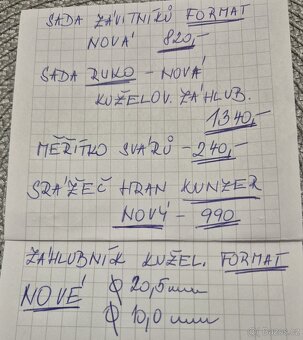 SADA ZÁVITNÍKŮ FORMAT
NOVÁ 820,-
SADA RUKO - NOVÁ
KUŽELOV. ZÁHLUB.
1340,-
MĚŘÍTKO SVÁRŮ - 240,-
SRÁŽEČ HRAN KUNZER
NOVÝ - 990
ZÁHLUBNÍK KUŽEL. FORMAT
NOVÉ φ 20,5 mm
φ 10,0 mm